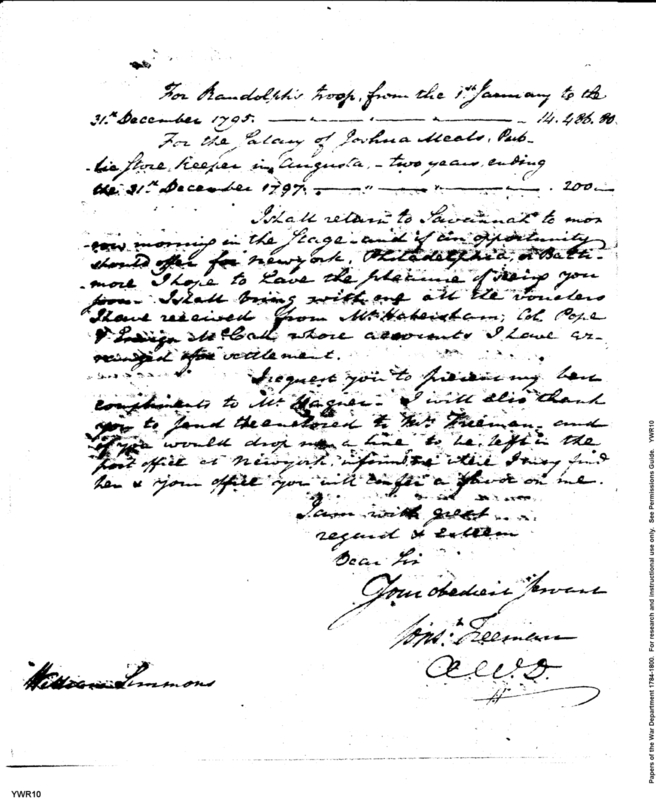 For Randolph's troop, from the 1st January to the
31st December 1795. — " — " — " — 14.486.80.
For the Salary of Joshua Meals, Pub-
lic Store Keeper in Augusta, – two years ending
the 31st December 1797. — " — " — . 200 —
I shall return to Savannah to mor
row morning in the Stage – and if an opportunity
should offer for Newyork, Philadelphia, or Balti-
more I hope to have the pleasure of seeing you
soon. I shall bring with me all the vouchers
I have received from Mr. Habersham, Col. Pope
& Ensign McCall whose accounts I have ar-
ranged for settlement.
I request you to present my best
compliments to Mr. Hagner. I will also thank
you to send the enclosed to Mrs. Freeman, and
if you would drop me a line to be left in the
post office at Newyork informing where I may find
her & your office you will confer a favor on me.
I am with great
regard & esteem
Dear Sir
Your obedient Servant
Cons.t Freeman
A.W.D.
William Simmons
YWR10
Papers of the War Department 1784-1800. For research and instructional use only. See Permissions Guide. YWR10